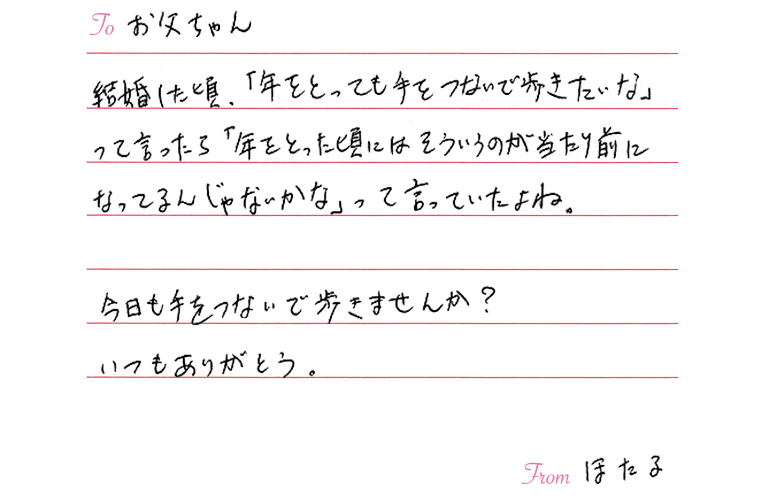 To お父ちゃん
結婚した頃、「年をとっても手をつないで歩きたいな」
って言ったら「年をとった頃にはそういうのが当たり前に
なってるんじゃないかな」って言っていたよね。
今日も手をつないで歩きませんか?
いつもありがとう。
From ほたる